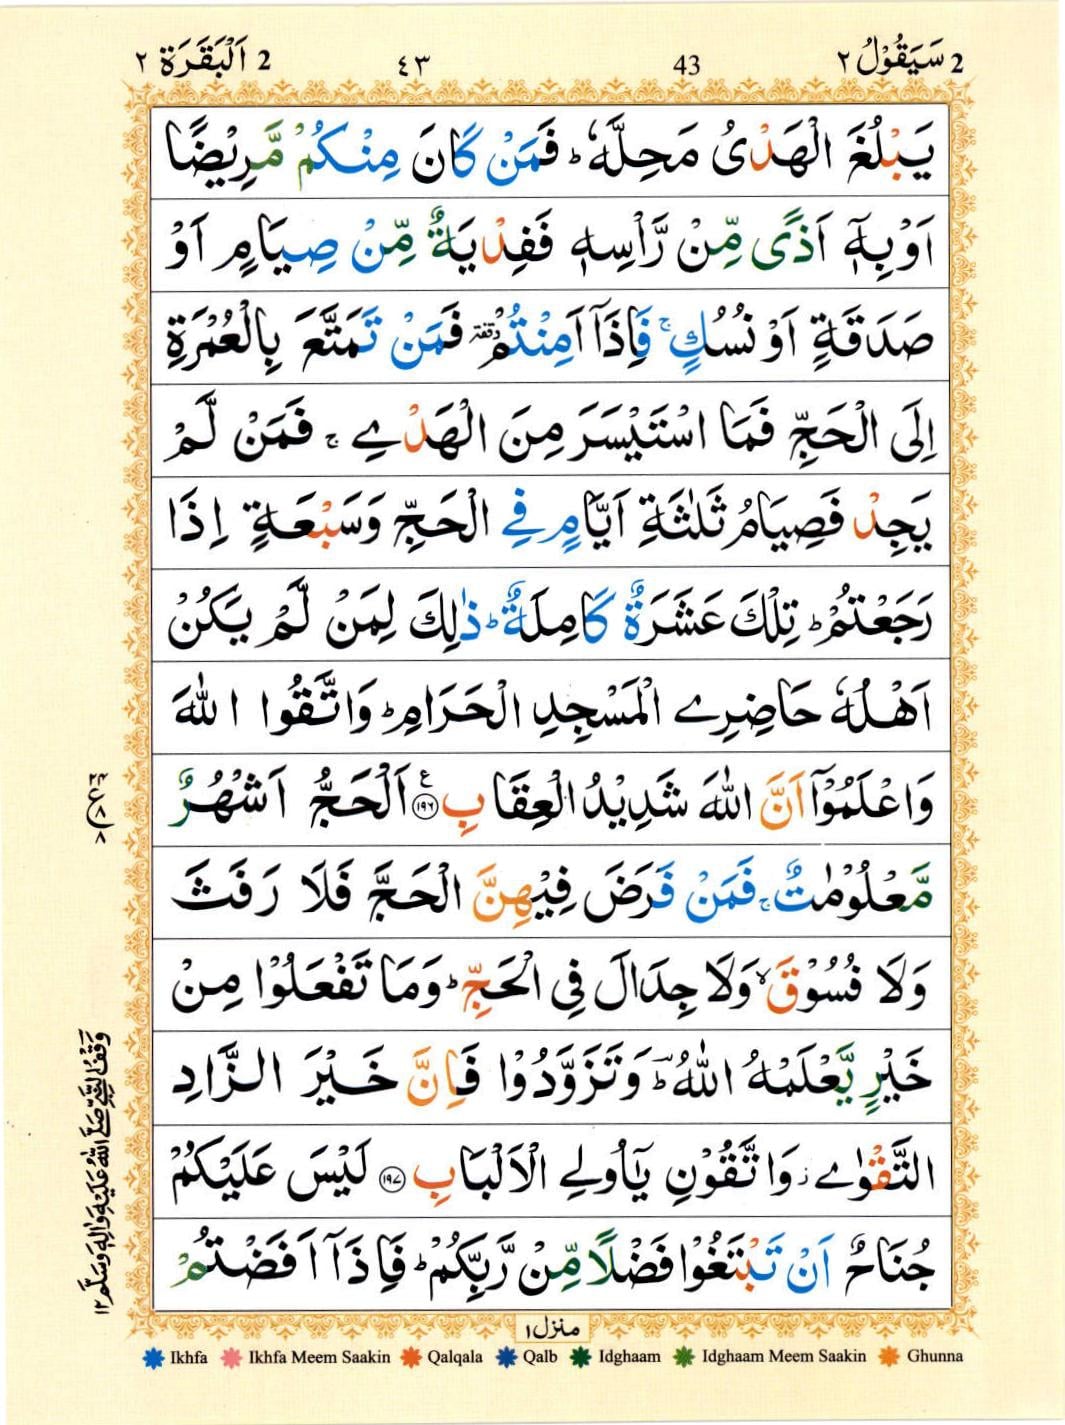 2 سَيَقُوْلُ ٢ 43 ٤٣ 2 اَلْبَقَرَة ٢
يَبْلُغَ الْهَدْىُ مَحِلَّهٗ ؕ فَمَنْ كَانَ مِنْكُمْ مَّرِيْضًا
اَوْ بِهٖۤ اَذًى مِّنْ رَّاْسِهٖ فَفِدْيَةٌ مِّنْ صِيَامٍ اَوْ
صَدَقَةٍ اَوْ نُسُكٍ ۚ فَاِذَاۤ اَمِنْتُمْ ٝ فَمَنْ تَمَتَّعَ بِالْعُمْرَةِ
اِلَى الْحَجِّ فَمَا اسْتَيْسَرَ مِنَ الْهَدْىِ ۚ فَمَنْ لَّمْ
يَجِدْ فَصِيَامُ ثَلٰثَةِ اَيَّامٍ فِى الْحَجِّ وَسَبْعَةٍ اِذَا
رَجَعْتُمْ ؕ تِلْكَ عَشَرَةٌ كَامِلَةٌ ؕ ذٰلِكَ لِمَنْ لَّمْ يَكُنْ
اَهْلُهٗ حَاضِرِى الْمَسْجِدِ الْحَرَامِ ؕ وَاتَّقُوا اللّٰهَ
وَاعْلَمُوْۤا اَنَّ اللّٰهَ شَدِيْدُ الْعِقَابِ ١٩٦ ع اَلْحَجُّ اَشْهُرٌ
مَّعْلُوْمٰتٌ ۚ فَمَنْ فَرَضَ فِيْهِنَّ الْحَجَّ فَلَا رَفَثَ
وَلَا فُسُوْقَ ۙ وَلَا جِدَالَ فِى الْحَجِّ ؕ وَمَا تَفْعَلُوْا مِنْ
خَيْرٍ يَّعْلَمْهُ اللّٰهُ ؕ وَتَزَوَّدُوْا فَاِنَّ خَيْرَ الزَّادِ
التَّقْوٰى ؗ وَاتَّقُوْنِ يٰۤاُولِى الْاَلْبَابِ ١٩٧ لَيْسَ عَلَيْكُمْ
جُنَاحٌ اَنْ تَبْتَغُوْا فَضْلًا مِّنْ رَّبِّكُمْ ؕ فَاِذَاۤ اَفَضْتُمْ
وَقْفُ النَّبِىِّ صَلَّى اللّٰهُ عَلَيْهِ وَاٰلِهٖ وَسَلَّمَ ١٢
منزل ١
Ikhfa Ikhfa Meem Saakin Qalqala Qalb Idghaam Idghaam Meem Saakin Ghunna